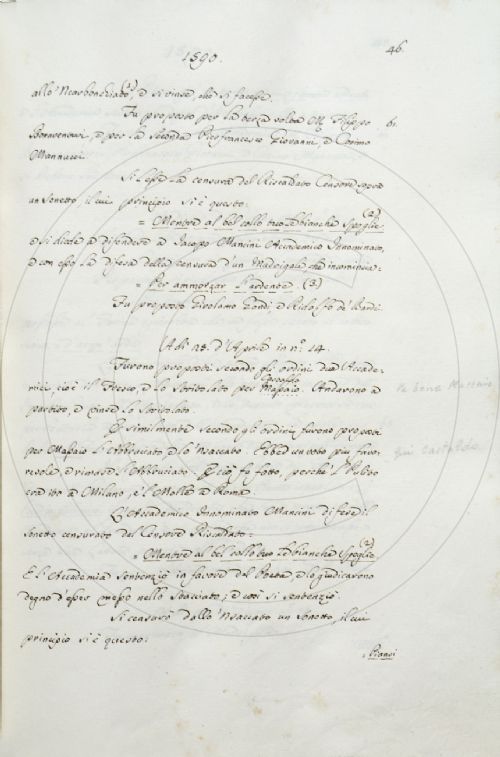 1590.
46.
allo 'Ncarbonchiato (1), e si vinse, che si facesse.
Fu proposto per la terza volta M. Filippo
Bonaventuri, e per la seconda Pierfrancesco Giovanni, e Cosimo
Mannucci
Si lesse la censura del Riscaldato Censore sopra
un Sonetto, il cui principio si è questo:
= Mentre al bel collo tuo le bianche spoglie (2)
e si diede a difendere a Jacopo Mancini Accademico Innominato,
e con esso la difesa della censura d'un Madrigale che incomincia:
= Per ammorzar l'ardente. (3)
Fu proposto Girolamo Zondi, e Ridolfo de' Bardi.
Adi 28. d'Aprile in n.º 14.
Furono proposti secondo gli ordini due Accade-
mici, cioè il Fresco, e lo Stritolato per Massaio. Andavono a
Castaldo
partito, e vinse lo Stritolato.
E similmente secondo gli ordini furono proposti
per Massaio l'Abbruciato e lo 'Nsaccato. Ebbe un voto più favo-
revole, e rimase l'Abbruciato. E ciò fu fatto, perchè l'
era ito a Milano, e 'l Mollo a Roma.
L'Accademico Innominato Mancini difese il
Sonetto censurato dal Censore Riscaldato:
= Mentre al bel collo tuo le bianche spoglie (2)
E l'Accademia sentenziò in favore del Poeta, e lo giudicarono
degno d'esser messo nello Stacciato; e così si sentenziò.
Si censurò dallo 'Nsaccato un Sonetto, il cui
principio si è questo:
= Piansi